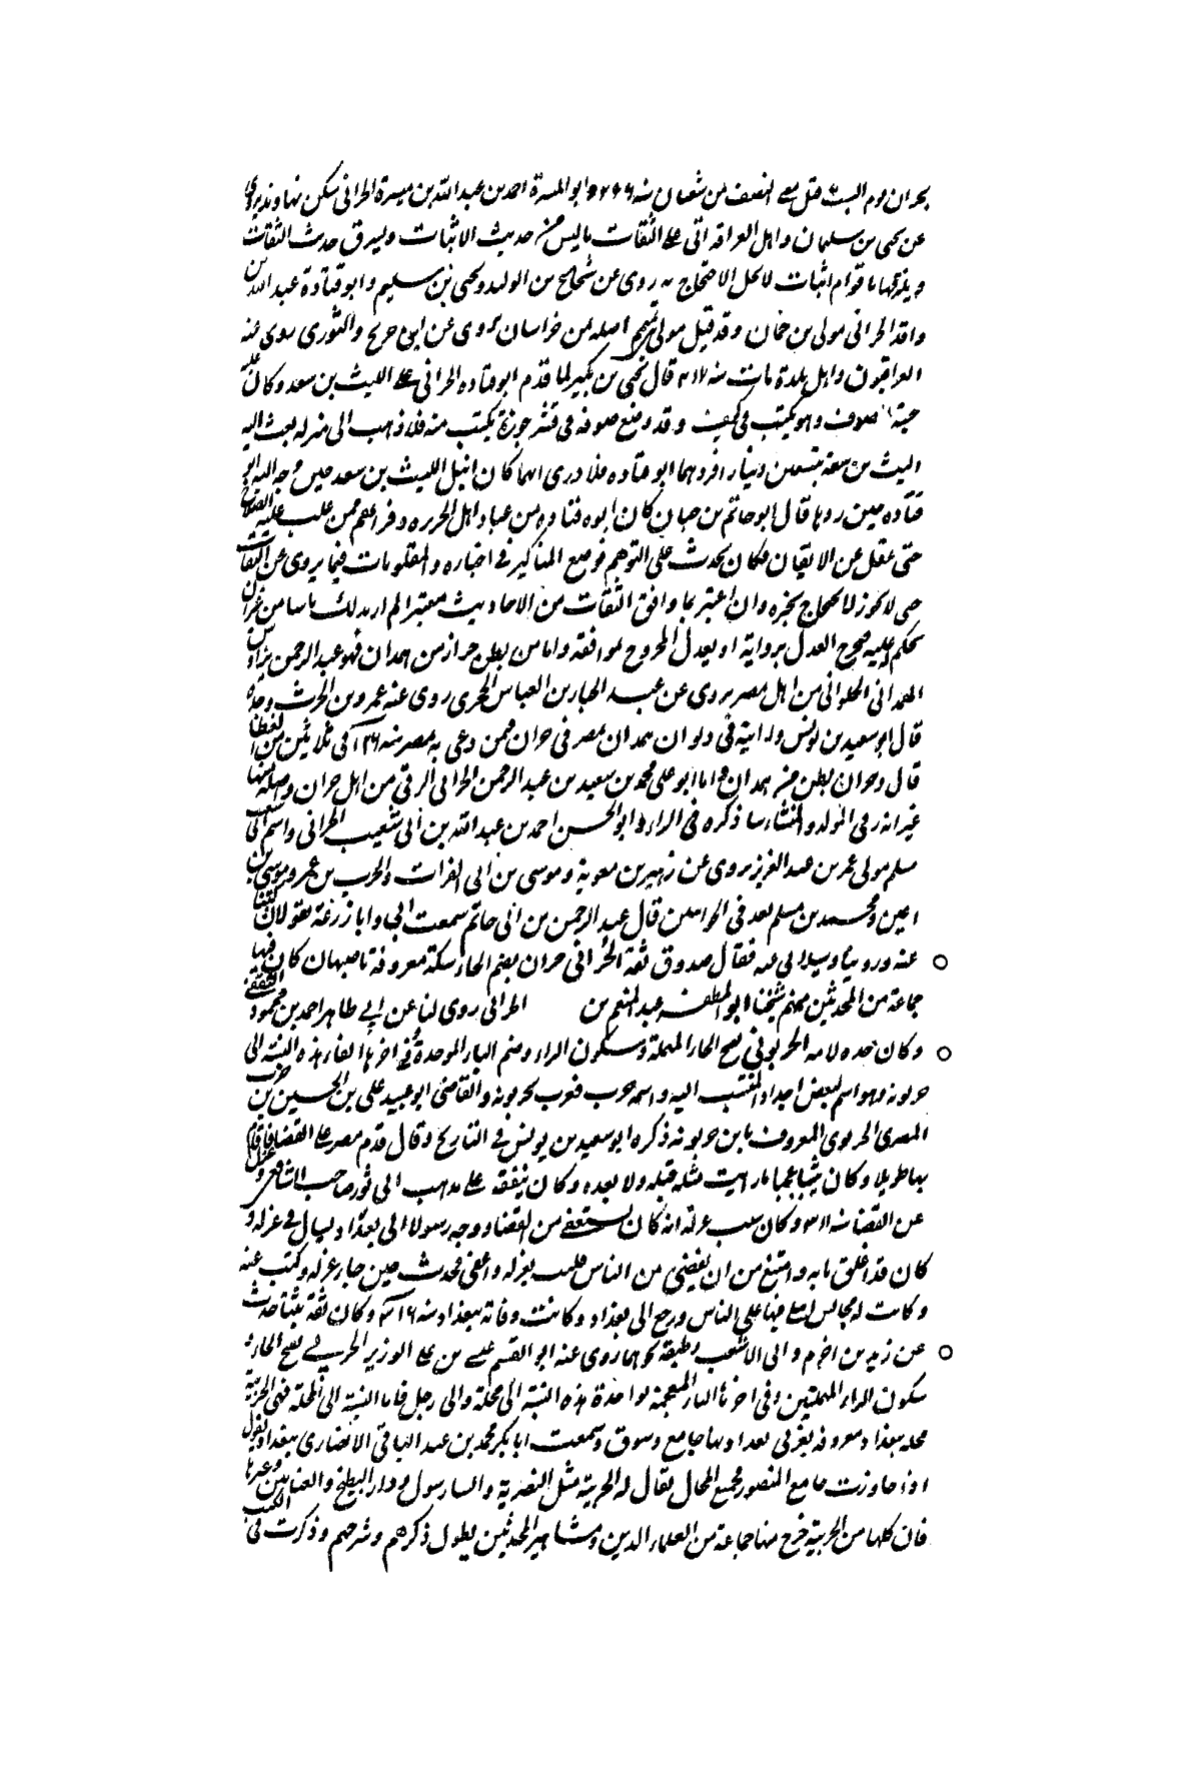 بحران يوم السبت قبل النصف من شعبان سنه ٢٤٦ وابو المسرة احمد بن عبد الله بن ميسرة الحرانى سكن نهاوند يروى
عن يحيى بن سليمان واهل العراق اتى على الثقات ما ليس من حديث الاثبات ويسرق حديث الثقات
ويلزقها باقوام اثبات لا يحل الاحتجاج به روى عن شجاع بن الوليد ويحيى بن سليم وابو قتادة عبد الله بن
واقد الحرانى مولى بن حمان وقد قيل مولى تميم اصله من خراسان يروى عن ابن جريج والثورى روى عنه
العراقيون واهل بلدة مات سنه قال يحيى بن بكير لما قدم ابو قتاده الحرانى على الليث بن سعد وكان عليه
جبة صوف وهو يكتب فى كتف وقد وضع صوفه فى قشر جوزة يكتب منه فلما ذهب الى منزله بعث اليه
الليث بن سعد بسبعين دينار افردها ابو قتاده فلا ادرى ايهما كان انبل الليث بن سعد حين وجه اليه ابو
قتاده حين ردها قال ابو حاتم بن حبان كان ابو قتاده من عباد اهل الجزيره وقرائهم ممن غلب عليه الصلاح
حتى غفل عن الاتقان فكان يحدث على التوهم فوقع المناكير فى اخباره والمقلوبات فيما يروى عن الثقات
حتى لا يجوز الاحتجاج بخبره وان اعتبر بما وافق الثقات من الاحاديث معتبر لم ار بذلك باسا من غير ان
يحكم عليه فيجرح العدل بروايته او يعدل المجروح لموافقته واما من بطن حران من همدان فهو عبد الرحمن بن
الهمدانى الحلوانى من اهل مصر يروى عن عبد الجبار بن العباس الحجرى روى عنه عمرو بن الحرث وحده
قال ابو سعيد بن يونس ورايته فى ديوان همدان مصر فى حران فيمن دعى به مصر سنه ١٢٦ فى ثلاثين من العطا
قال وحران بطن من همدان واما ابو على محمد بن سعيد بن عبد الرحمن الحرانى الرقى من اهل حران واصله منها
غير انه رقى المولد والمنشا سا ذكره فى الراء وابو الحسن احمد بن عبد الله بن ابى شعيب الحرانى واسم ابى شعيب
مسلم مولى عمر بن عبد العزيز يروى عن زهير بن معوية وموسى بن ابى الفرات والحرث بن عمرو وموسى بن
اعين ومحمد بن مسلم يعد فى الحرانيين قال عبد الرحمن بن ابى حاتم سمعت ابى وابا زرعة يقولان كتبنا
عنه وروينا وسئل ابى عنه فقال صدوق ثقة الحرانى حران بضم الحاء سكة معروفة باصبهان كان فيها
جماعة من المحدثين منهم شيخنا ابو المطهر عبد المنعم بن الحرانى روى لنا عن ابى طاهر احمد بن محمود الثقفى
وكان جده لامه الحربونى بفتح الحاء المهملة وسكون الراء وضم الباء الموحدة وفى اخرها الفاء هذه النسبة الى
حربويه وهو اسم لبعض اجداد المنتسب اليه واسمه حرب فعرب بحربويه والقاضى ابو عبيد على بن الحسين بن حرب
المصرى الحربوى المعروف بابن حربويه ذكره ابو سعيد بن يونس فى التاريخ وقال قدم مصر على القضا فاقام
بها طويلا وكان شيئا عجبا ما رايت مثله قبله ولا بعده وكان يتفقه على مذهب ابى ثور صاحب الشافعى وعزل
عن القضا سنه ٣١١ وكان سبب عزله انه كان يستعفى من القضا ووجه رسولا الى بغداد يسال فى عزله و
كان قد اغلق بابه وامتنع من ان يقضى من الناس فكتب بعزله واعفى فحدث حين جاء عزله وكتب عنه
وكانت له مجالس املى فيها على الناس ورجع الى بغداد وكانت وفاته ببغداد سنه وكان ثقة ثبتا حدث
عن زيد بن اخزم والى الاشعث وطبقة نحوهما روى عنه ابو القسم عيسى بن على الوزير الحربى بفتح الحاء و
سكون الراء المهملتين وفى اخرها الباء المعجمة بواحدة هذه النسبة الى محلة والى رجل فاما النسبة الى المحلة فهى الحربية
محله ببغداد معروفه بغربى بغداد وبها جامع وسوق وسمعت ابا بكر محمد بن عبد الباقى الانصارى ببغداد يقول
اذا جاوزت جامع المنصور فجميع المحال يقال له الحربية مثل النصرية والسارسول ودار البطيخ والعتابيين وغيرها
فان كلها من الحربية خرج منها جماعة من العلماء الدين ومشاهير المحدثين يطول ذكرهم وشرحهم وذكرت فى الكتب